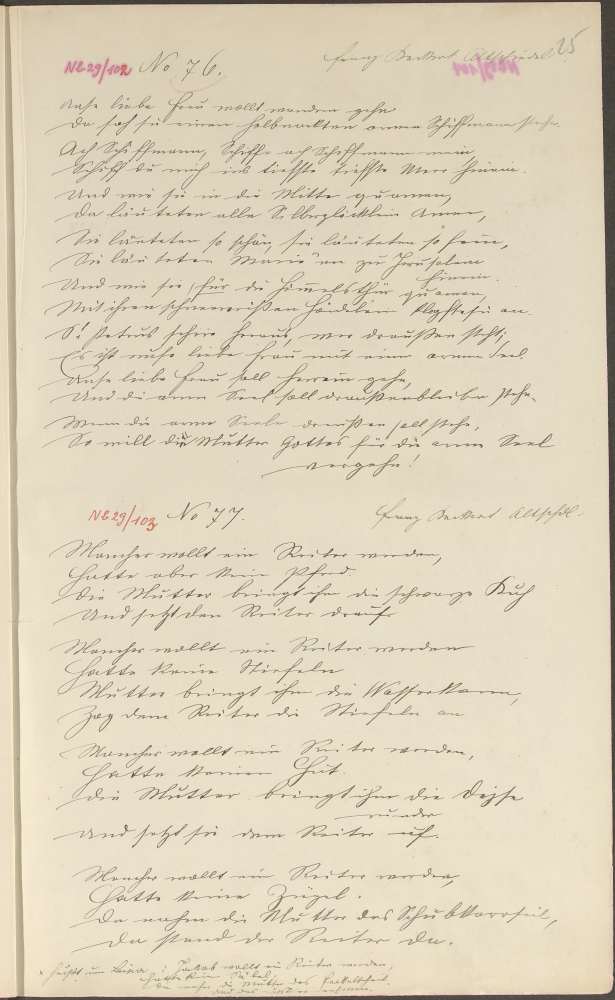 25
NE 29/102 No 76. Franz Altschedel
NE 29/101
Unse liebe Frau wollt wandern gehn
Da sah sie einen halbnackten armen Schiffmann stehn
Ach Schiffmann, Schiffe ach Schiffmann mein,
Schiff du mich ins tiefste tiefste Meer hinein.
Und wie sie in die Mitte quamen,
Da läuteten alle Silberglöcklein Amen,
Sie läuteten so schön, sie läuteten so fein,
Sie läuteten Maria zu Jerusalem
hinein.
Und wie sie für die Himmelsthür quamen,
Mit ihren schneeweißen Händelein klopfte sie an.
St Petrus schrie heraus, wer draußen steht;
Es ist unse liebe Frau mit einer armen Seel.
Unse liebe Frau soll herrein gehn,
Und die arme Seel soll draußenbleiben stehn.
Wenn die arme Seele draußen soll stehn,
So will die Mutter Gottes für die arme Seel
vergehn!
NE 29/103 No 77. Franz Altschedl.
Mancher wollt ein Reiter werden,
Hatte aber kein Pferd.
Die Mutter bringt ihm die schwarze Kuh
Und setzt den Reiter drauf
Mancher wollt ein Reiter werden
Hatte keine Stiefeln
Mutter bringt ihm die Wasserkann,
Zog dem Reiter die Stiefeln an
Mancher wollt ein Reiter werden,
Hatte keinen Hut.
Die Mutter bringt ihm die
und setzt sie dem Reiter uf.
Mancher wollt ein Reiter werden,
Hatte keine Zügel.
Da nahm die Mutter das Schubkarrseil,
Da stand der Reiter da.
Jakob wollt ein Reiter werden,
Hatte kein Säbel,
Da nahm die Mutter das